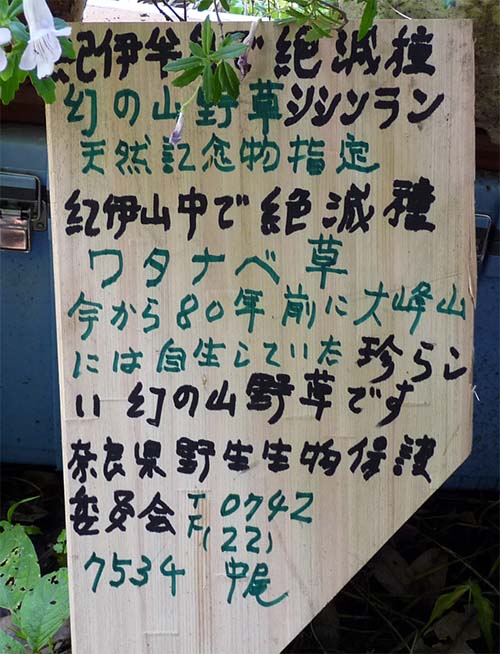 紀伊半島で絶滅種
幻の山野草シシンラン
天然記念物指定
紀伊山中で絶滅種
ワタナベ草
今から80年前に大峰山
には自生していた珍らし
い幻の山野草です
奈良県野生生物保護
委員会 TF 0742
(22)
7534 中尾